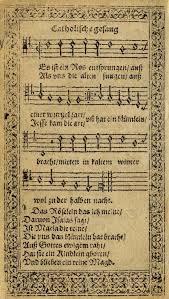 Catholische gesang
Es ist ein Ros entsprungen/ auß
Als vns die alten sungen/ auß
einer wurtzel zart/ vñ hat ein blümlein/
Jesse kam die art/
bracht/ mitten in kaltem winter
wol zu der halben nacht.
Das Röselein das ich meine/
Daruon Isaias sagt/
Ist Maria die reine/
Die vns das blümlein hat bracht/
Auß Gottes ewigem raht/
Hat sie ein Kindlein geboren/
Vnd blieben ein reine Magd.